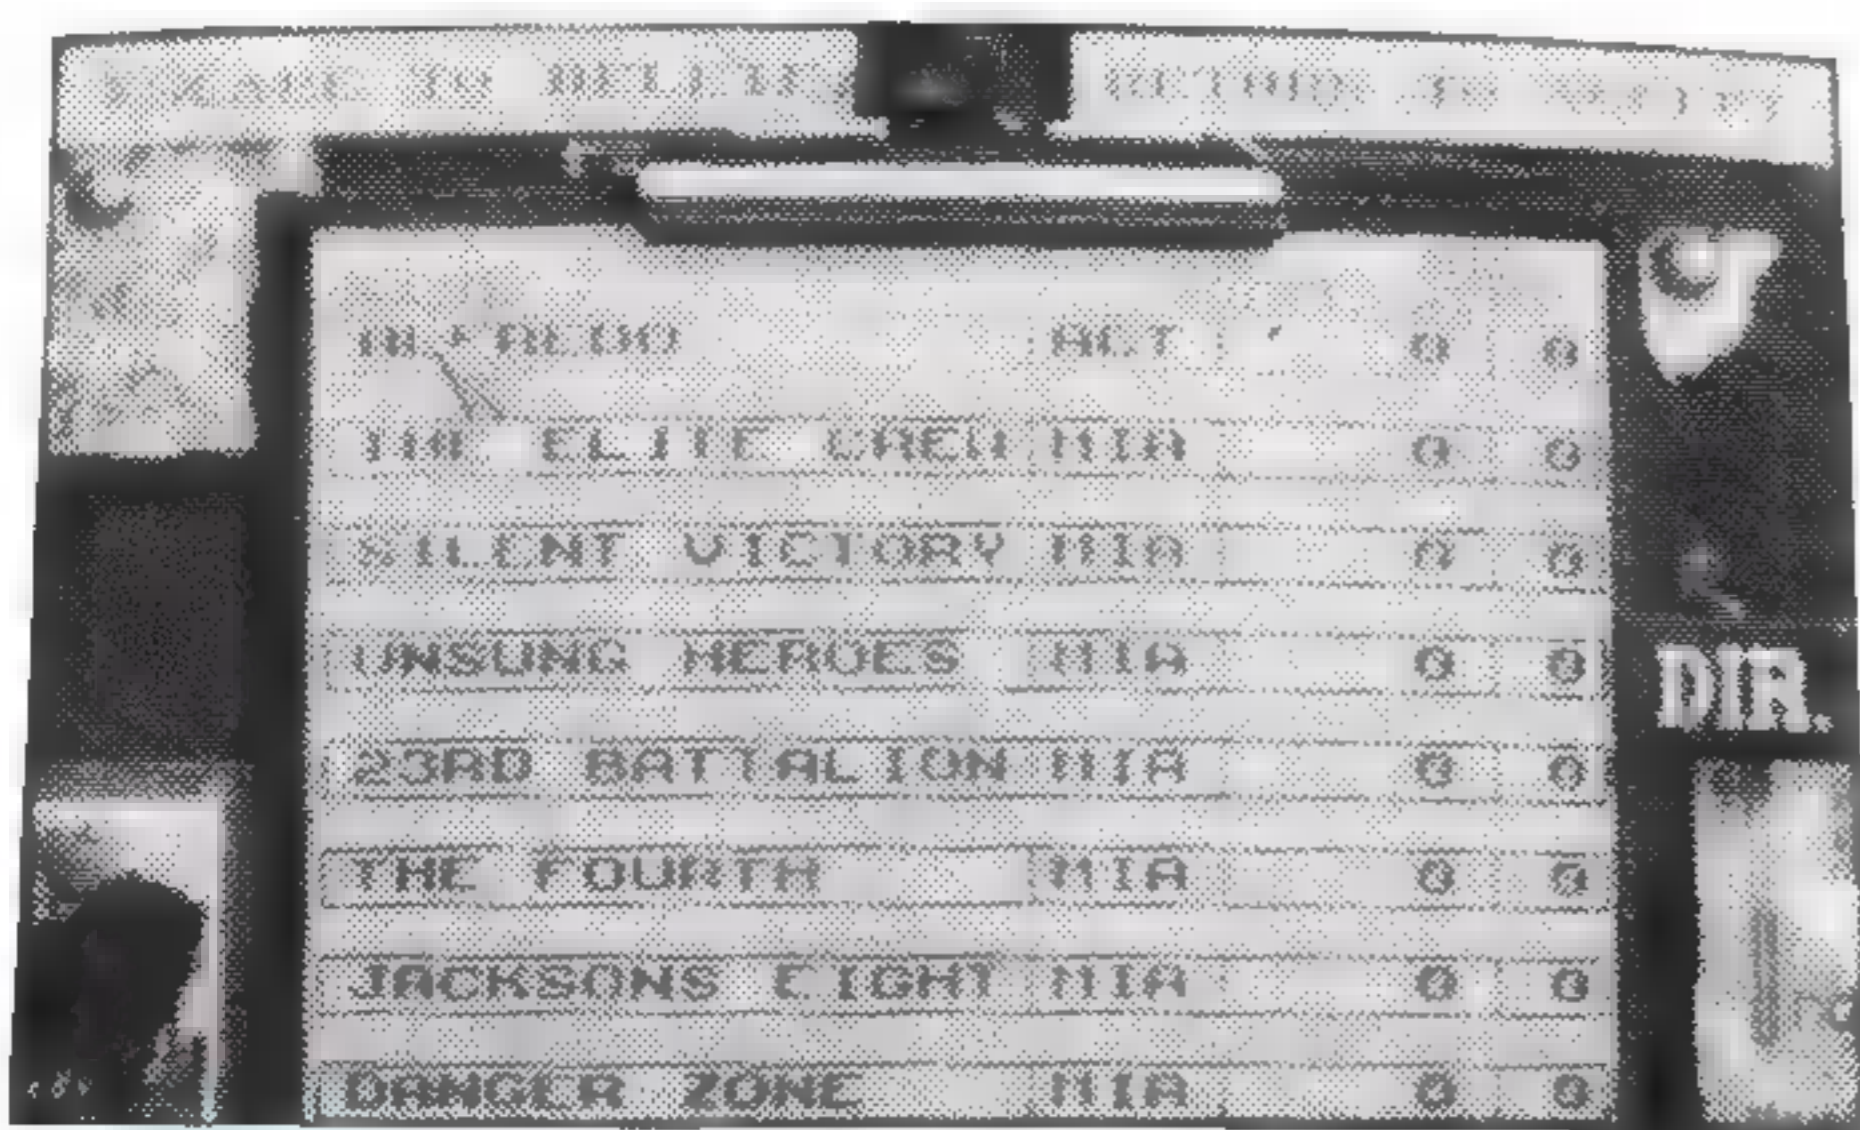 ACT 0 0
ELITE CREW MIA 0 0
SILENT VICTORY MIA 0 0
UNSUNG HEROES MIA 0 0
23RD BATTALION MIA 0 0
THE FOURTH MIA 0 0
JACKSONS EIGHT MIA 0 0
DIR.
DANGER ZONE MIA 0 0